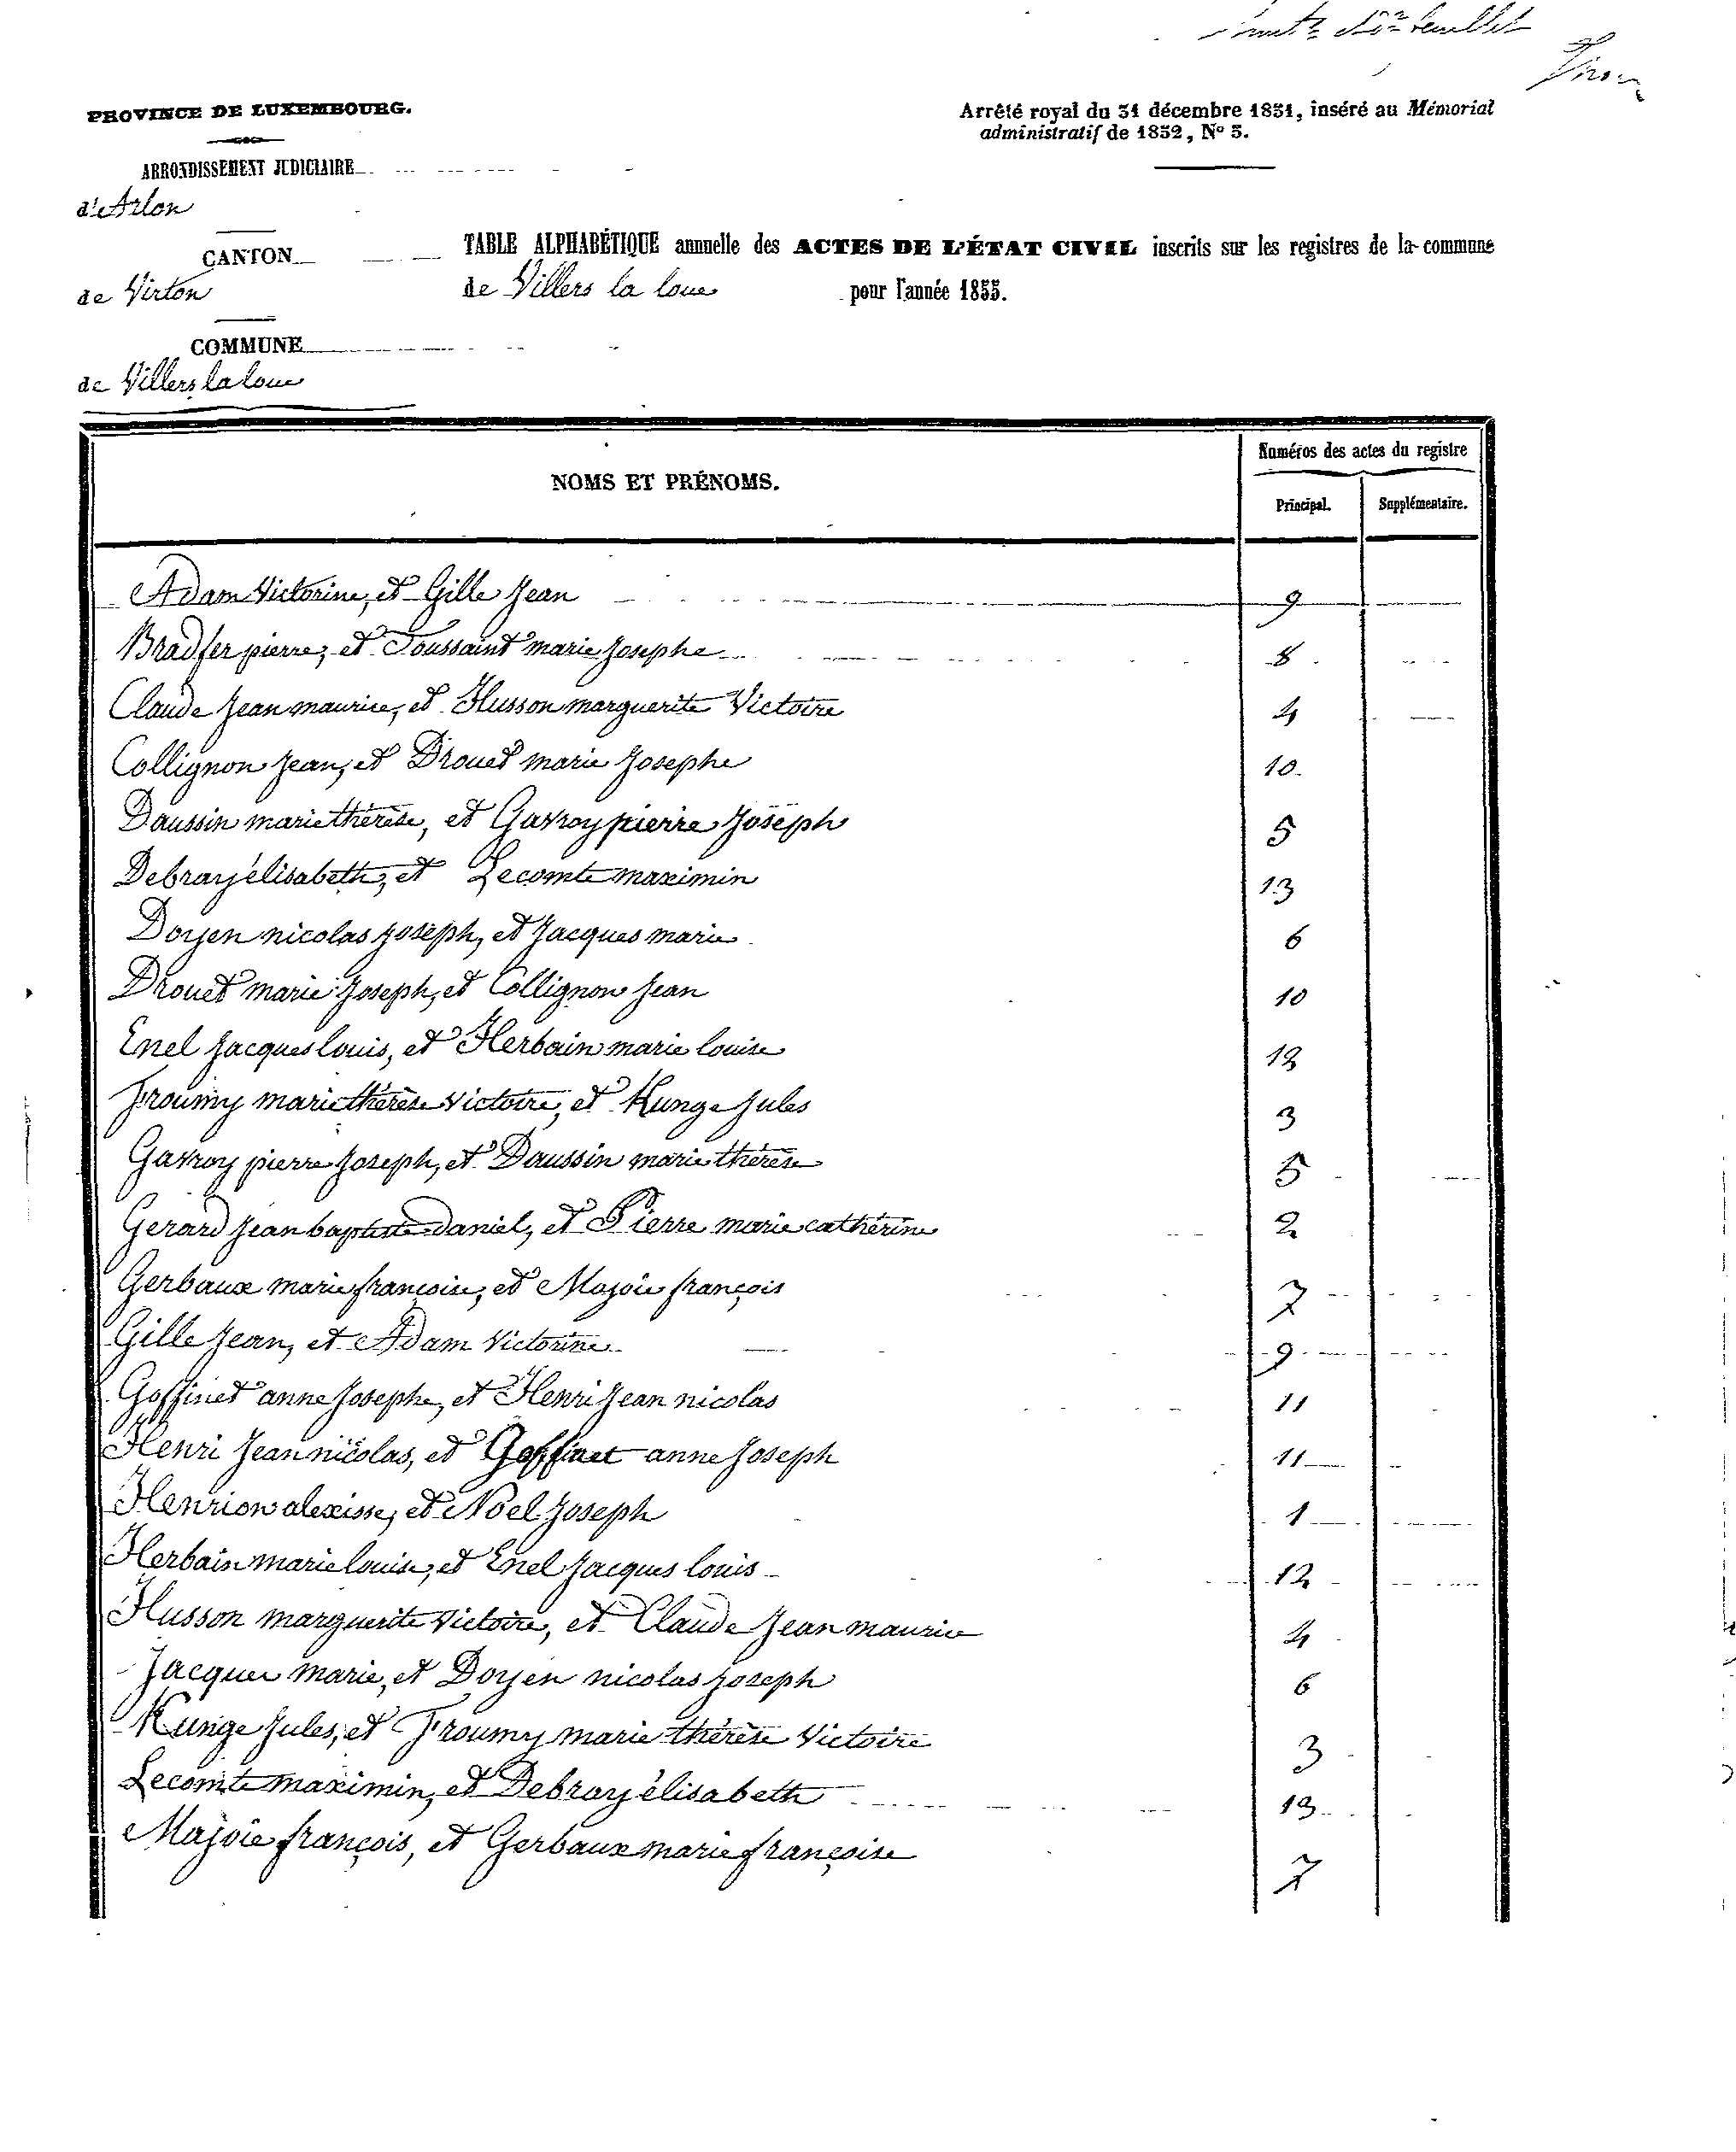 feuillet
PROVINCE DE LUXEMBOURG.
Arrêté royal du 31 décembre 1831, inséré au Mémorial
administratif de 1832, No 3.
ARRONDISSEMENT JUDICIAIRE
d'Arlon
CANTON
de Virton
TABLE ALPHABÉTIQUE annuelle des ACTES DE L'ÉTAT CIVIL inscrits sur les registres de la commune
de Villers la loue pour l'année 1855.
COMMUNE
de Villers la loue
NOMS ET PRÉNOMS.
Numéros des actes du registre
Principal. Supplémentaire.
Adam Victorine, et Gille Jean 9
Bradfer pierre, et Toussaint marie Josephe 8
Claude Jean maurice, et Husson marguerite Victoire 4
Collignon Jean, et Drouet marie Josephe 10
Daussin marie thérèse, et Gavroy pierre Joseph 5
Debray élisabeth, et Lecomte maximin 13
Doyen nicolas Joseph, et Jacques marie 6
Drouet marie Joseph, et Collignon Jean 10
Enel Jacques louis, et Herbain marie louise 12
Froumy marie thérèse Victoire, et Kunge Jules 3
Gavroy pierre Joseph, et Daussin marie thérèse 5
Gerard Jean baptiste Daniel, et Pierre marie cathérine 2
Gerbaux marie françoise, et Majoie françois 7
Gille Jean, et Adam Victorine 9
Goffinet anne Josephe, et Henri Jean nicolas 11
Henri Jean nicolas, et Goffinet anne Joseph 11
Henrion alexisse, et Noel Joseph 1
Herbain marie louise, et Enel Jacques louis 12
Husson marguerite Victoire, et Claude Jean maurice 4
Jacques marie, et Doyen nicolas Joseph 6
Kunge Jules, et Froumy marie thérèse Victoire 3
Lecomte maximin, et Debray élisabeth 13
Majoie françois, et Gerbaux marie françoise 7